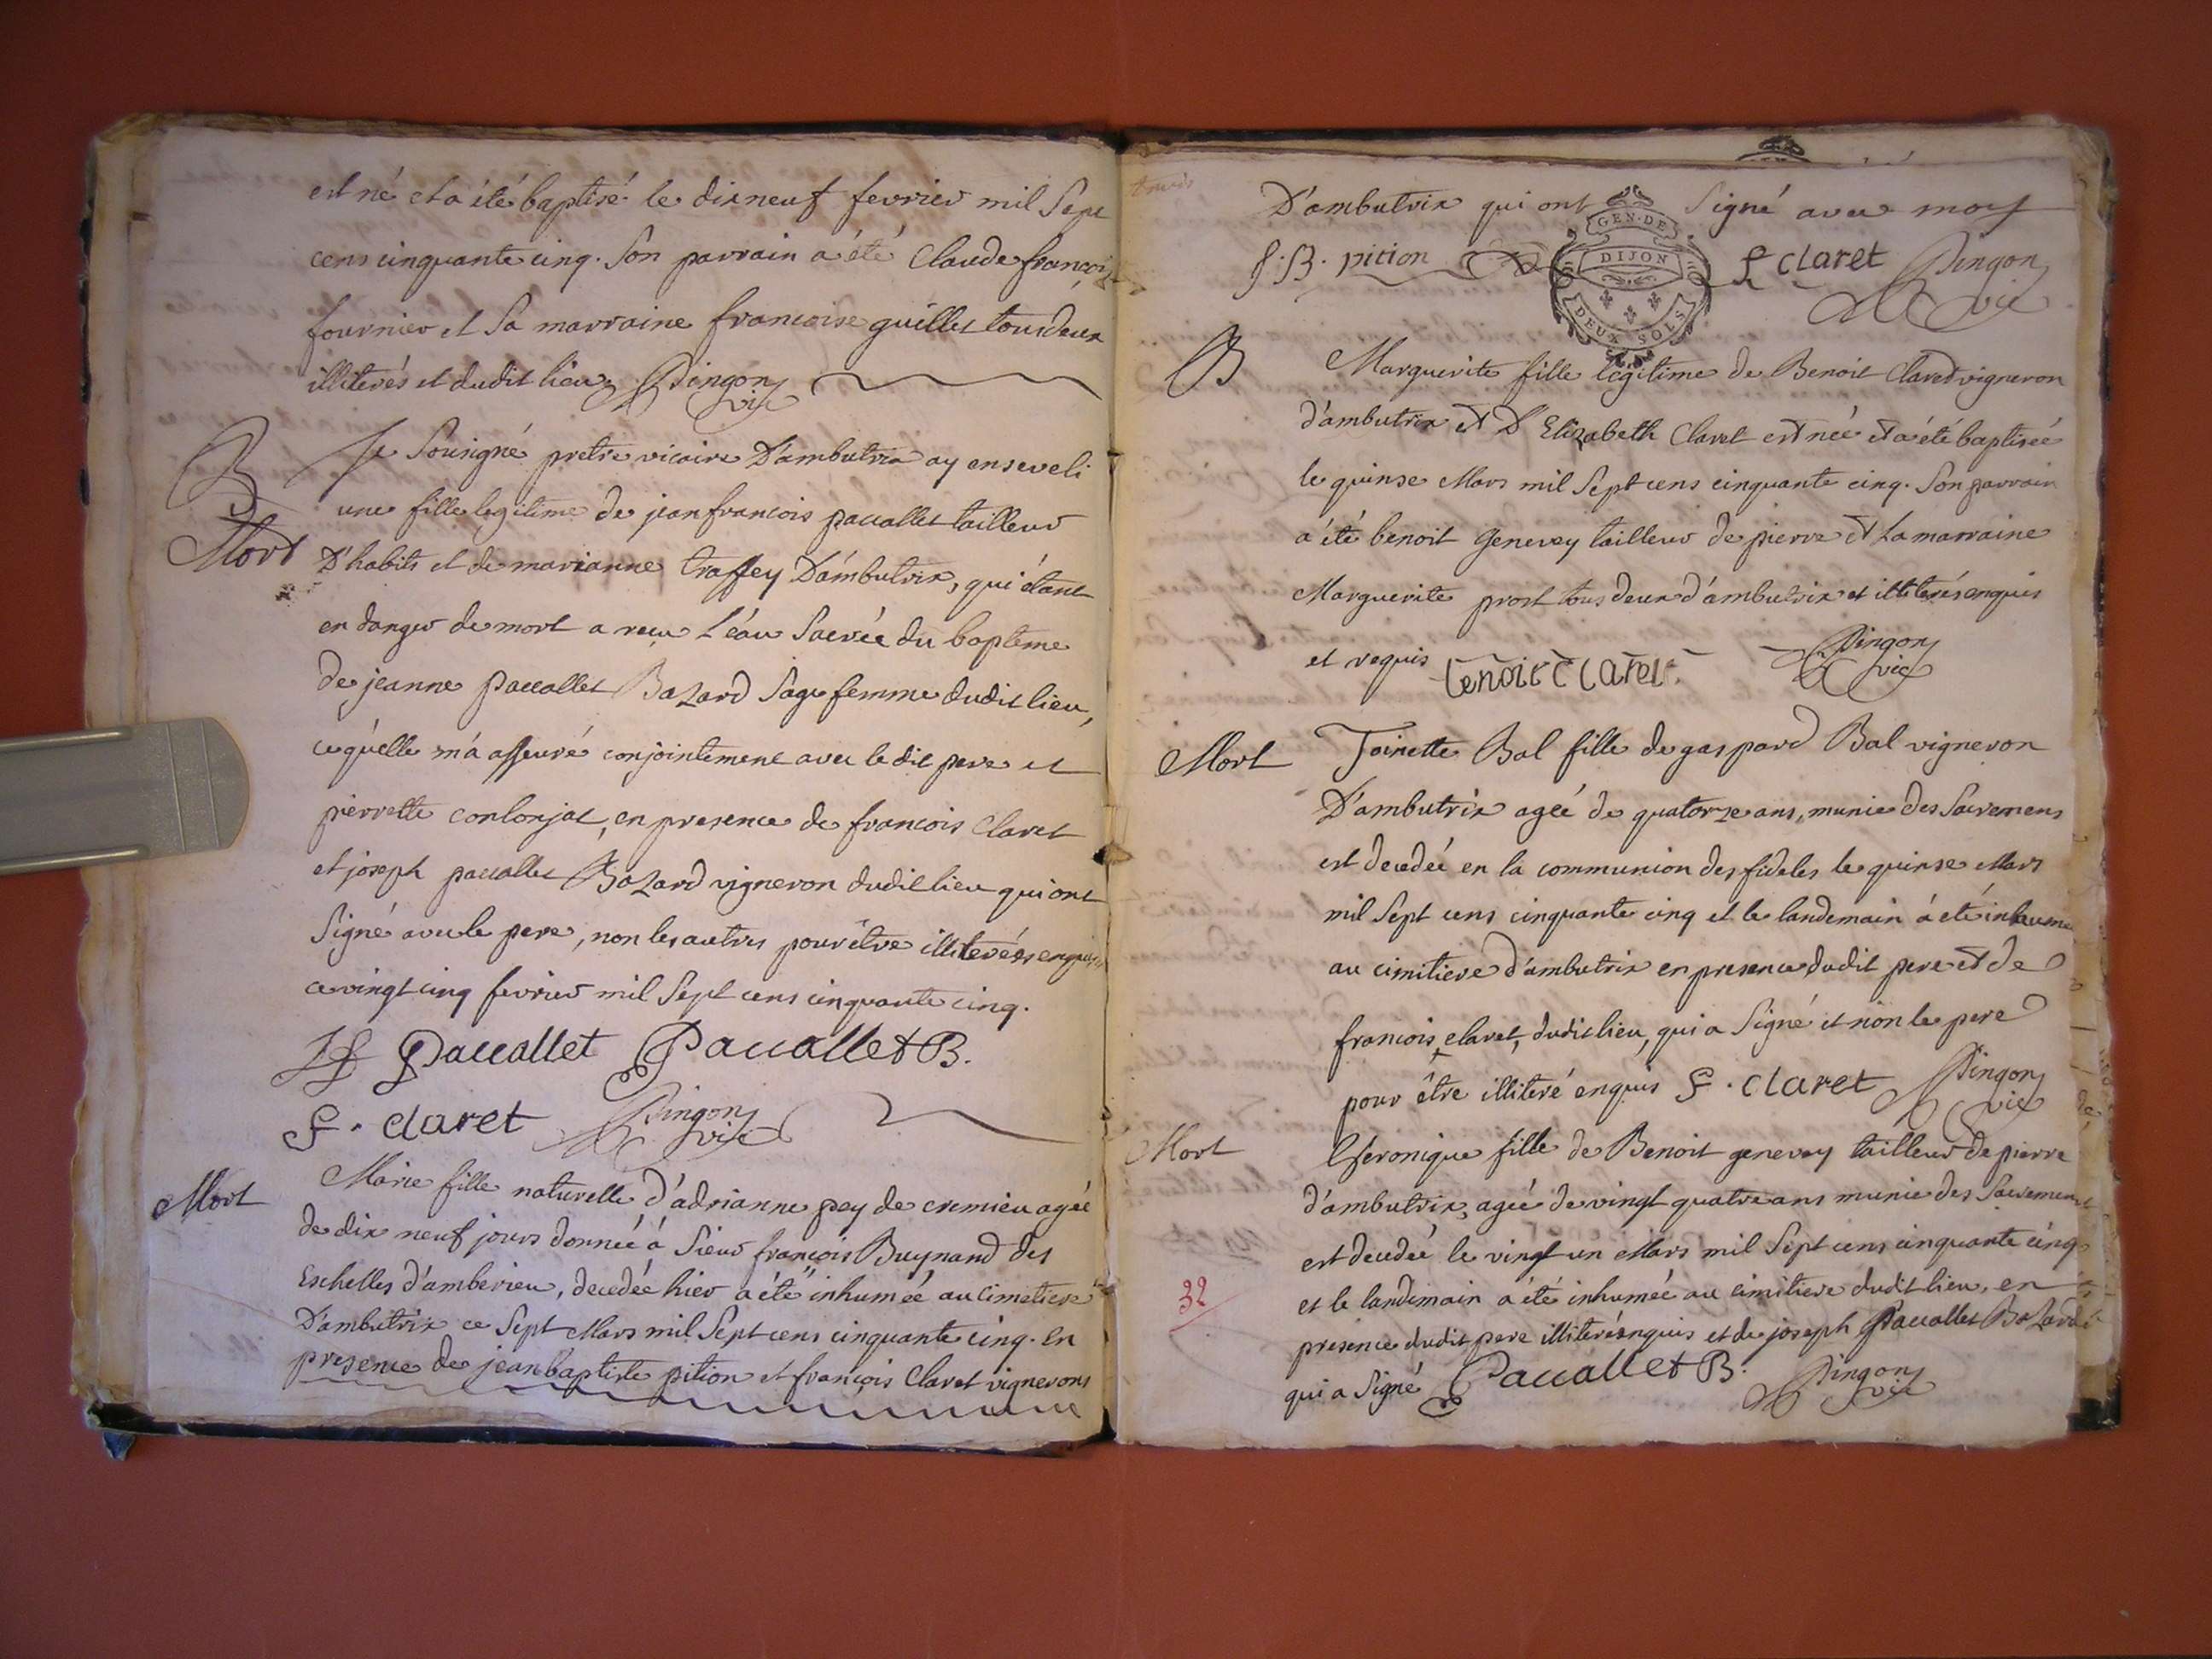 est né et a été baptisé le dix neuf fevrier mil Sept
cens cinquante cinq. Son parrain a été Claude françois
fournier et Sa marraine francoise guillet tous deux
illiterés et dudit lieu Pingon
vic
B
Mort
Je Sousigné pretre vicaire D'ambutrix ay enseveli
une fille legitime de jean francois paccallet tailleur
D'habits et de marianne traffey D'ambutrix, qui étant
en danger de mort a reçu L'éau Sacrée du baptême
de jeanne paccallet Bazard Sage femme dudit lieu,
ce qu'elle m'a asseuré conjointement avec le dit pere et
pierrette conlonjat, en presence de francois Claret
et joseph paccallet Bazard vigneron dudit lieu qui ont
Signé avec le pere, non les autres pour être illiterés enquis
ce vingt cinq fevrier mil Sept cens cinquante cinq.
JF Paccallet Paccallet B.
F. Claret Pingon
vic
Mort
Marie fille naturelle d'adrianne pey de cremieu agée
de dix neuf jours donnée à Sieur françois Buynand des
Eschelles d'amberieu, decedée hier a été inhumée au cimetiere
D'ambutrix ce Sept Mars mil Sept cens cinquante cinq. en
presence de jean baptiste pition et françois Claret vignerons
D'ambutrix qui ont Signé avec moy
GEN. DE
DIJON
DEUX SOLS
J. B. pition F Claret Pingon
vic
B
Marguerite fille legitime de Benoit Claret vigneron
d'ambutrix et D'Elizabeth Claret est née et a été baptisée
le quinse Mars mil Sept cens cinquante cinq. Son parrain
a été benoit Genevey tailleur de pierre et La marraine
Marguerite prost tous deux d'ambutrix et illiterés enquis
et requis benoit Claret. Pingon
vic
Mort
Toinette Bal fille de gaspard Bal vigneron
D'ambutrix agée de quatorze ans, munie des Sacremens
est decedée en la communion des fideles le quinse Mars
mil Sept cens cinquante cinq et le landemain a été inhumée
au cimitiere d'ambutrix en presence dudit pere et de
francois claret, dudit lieu, qui a Signé et non le pere
pour être illiteré enquis F. Claret Pingon
vic
Mort
Véronique fille de Benoit genevey tailleur de pierre
d'ambutrix, agée de vingt quatre ans munie des Sacremens
est decedée le vingt un Mars mil Sept cens cinquante cinq
et le landemain a été inhumée au cimitiere dudit lieu, en
32
presence dudit pere illiteré enquis et de joseph Paccallet Bazard
qui a Signé Paccallet B. Pingon
vic